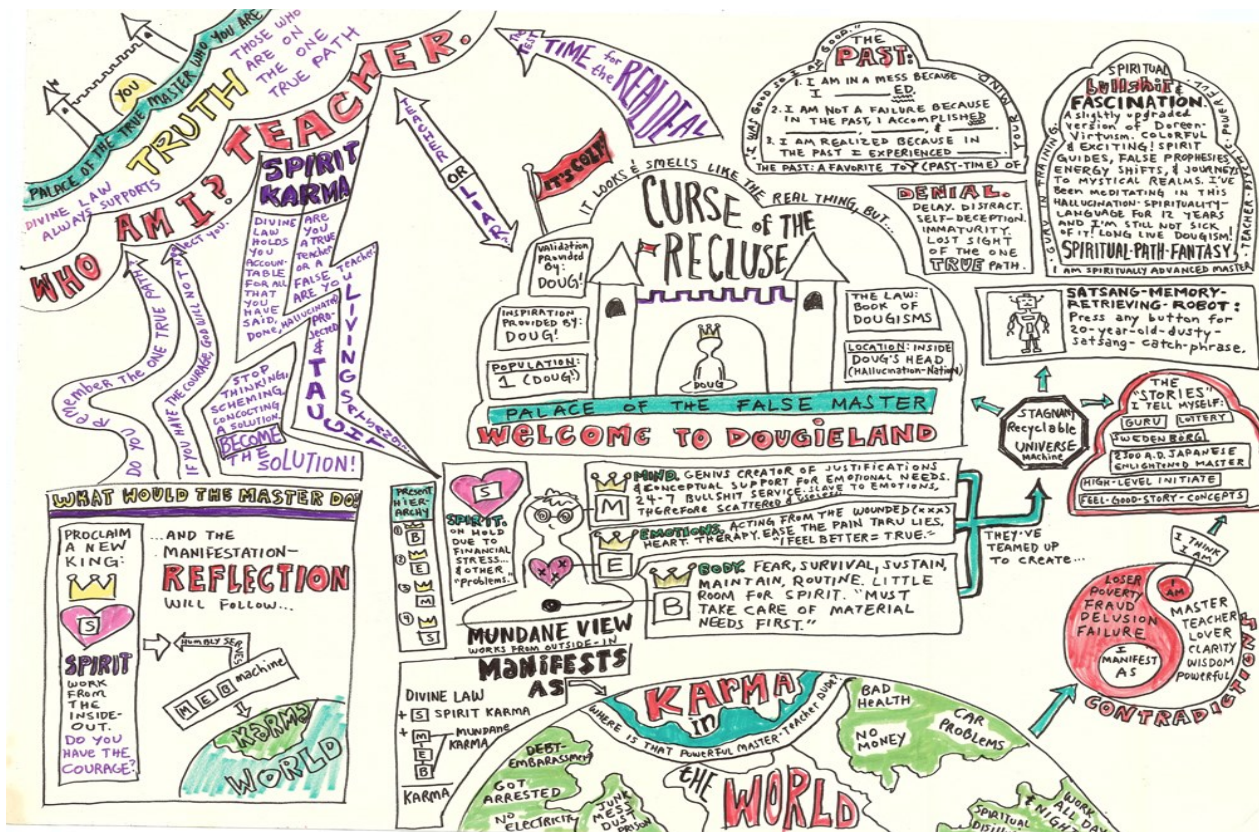 PALACE OF THE TRUE MASTER WHO YOU ARE
YOU
TRUTH
THOSE WHO
ARE ON
THE ONE
TRUE PATH
DIVINE LAW
ALWAYS SUPPORTS
WHO AM I?
TEACHER.
SPIRIT
KARMA
DIVINE
LAW
HOLDS
YOU
ACCOUN-
TABLE
FOR ALL
THAT
YOU
HAVE
SAID,
DONE,
ARE
YOU
A TRUE
TEACHER
OR A
FALSE TEACHER.
ARE YOU
LIVING
& TAUGHT
STOP
THINKING,
SCHEMING,
CONCOCTING
A SOLUTION.
BECOME
THE
SOLUTION!
DO YOU REMEMBER THE ONE TRUE PATH?
IF YOU HAVE THE COURAGE, GOD WILL NOT NEGLECT YOU.
TEACHER
OR
LIAR?
THE TEST
TIME for the REAL DEAL
IT'S GOLD!
IT LOOKS & SMELLS LIKE THE REAL THING, BUT...
CURSE
of the
RECLUSE
Validation
Provided
By:
DOUG!
INSPIRATION
PROVIDED BY:
DOUG!
POPULATION:
1 (DOUG!)
THE LAW:
BOOK OF
DOUGISMS
LOCATION: INSIDE
DOUG'S HEAD
(HALLUCINATION-NATION)
DOUG
PALACE OF THE FALSE MASTER
WELCOME TO DOUGIELAND
I WAS GOOD SO I AM GOOD."
THE
PAST:
1. I AM IN A MESS BECAUSE
I ____ED.
2. I AM NOT A FAILURE BECAUSE
IN THE PAST, I ACCOMPLISHED
____, ____, & ____.
3. I AM REALIZED BECAUSE IN
THE PAST I EXPERIENCED ____.
THE PAST: A FAVORITE TOY (PAST-TIME) OF YOUR MIND.
DENIAL.
DELAY. DISTRACT.
SELF-DECEPTION.
IMMATURITY.
LOST SIGHT
OF THE ONE
TRUE PATH.
GURU IN TRAINING.
TEACHER. POWERFUL.
SPIRITUAL
bullshit &
FASCINATION.
A slightly upgraded
version of Doreen-
Virtuism. COLORFUL
& EXCITING! SPIRIT
GUIDES, FALSE PROPHESIES,
ENERGY SHIFTS, & JOURNEYS
TO MYSTICAL REALMS. I'VE
Been MEDITATING IN THIS
HALLUCINATION-SPIRITUALITY-
LANGUAGE FOR 12 YEARS
AND I'M STILL NOT SICK
OF IT! LONG LIVE DOUGISM!
SPIRITUAL-PATH-FANTASY
I AM SPIRITUALLY ADVANCED MASTER
SATSANG-MEMORY-
RETRIEVING-ROBOT:
Press any button for
20-year-old-dusty-
satsang-catch-phrase.
STAGNANT
Recyclable
UNIVERSE
Machine
THE
"STORIES"
I TELL MYSELF:
GURU
LOTTERY
SWEDENBORG
2300 A.D. JAPANESE
ENLIGHTENED MASTER
HIGH-LEVEL INITIATE
FEEL-GOOD-STORY-CONCEPTS
WHAT WOULD THE MASTER DO?
PROCLAIM
A NEW
KING:
S
SPIRIT
WORK
FROM
THE
INSIDE-
OUT.
DO YOU
HAVE THE
COURAGE?
...AND THE
MANIFESTATION-
REFLECTION
WILL FOLLOW...
HUMBLY SERVES
M E B machine
KARMA
WORLD
PRESENT
HIER-
ARCHY
1 B
2 E
3 M
4 S
S
SPIRIT.
ON HOLD
DUE TO
FINANCIAL
STRESS...
& OTHER
"Problems."
M
MIND. GENIUS CREATOR OF JUSTIFICATIONS
& CONCEPTUAL SUPPORT FOR EMOTIONAL NEEDS.
24-7 BULLSHIT SERVICE. SLAVE TO EMOTIONS,
THEREFORE SCATTERED & USELESS.
E
EMOTIONS. ACTING FROM THE WOUNDED (XXX)
HEART. THERAPY. EASE THE PAIN THRU LIES,
"I FEEL BETTER = TRUE."
B
BODY. FEAR, SURVIVAL, SUSTAIN,
MAINTAIN, ROUTINE. LITTLE
ROOM FOR SPIRIT. "MUST
TAKE CARE OF MATERIAL
NEEDS FIRST."
THEY'VE
TEAMED UP
TO CREATE...
MUNDANE VIEW
WORKS FROM OUTSIDE-IN
MANIFESTS
AS
DIVINE LAW
+ S SPIRIT KARMA
+ M
E
B
MUNDANE
KARMA
KARMA
KARMA
in
WHERE IS THAT POWERFUL MASTER-TEACHER DUDE?
the
WORLD
DEBT-
EMBARASSMENT
GOT
ARRESTED
NO
ELECTRICITY
JUNK
MESS
DUST
PRISON
BAD
HEALTH
NO
MONEY
CAR
PROBLEMS
SPIRITUAL
WORK
ALL DAY
& NIGHT
I THINK
I AM
LOSER
POVERTY
FRAUD
DELUSION
FAILURE
I
MANIFEST
AS
I
AM
MASTER
TEACHER
LOVER
CLARITY
WISDOM
POWERFUL
CONTRADICTION